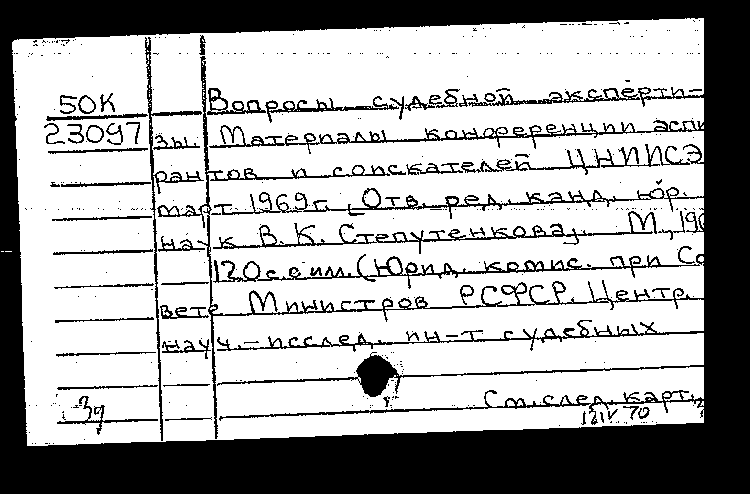 50К Вопросы судебной эксперти-
23097 зы. Материалы конференции аспи
рантов и соискателей ЦНИИСЭ
март 1969г. [Отв. ред. канд. юр.
наук В. К. Степутенкова]. М., 196
120с. с илл. (Юрид. комис. при Со
вете Министров РСФСР. Центр.
науч.-исслед. ин-т судебных
См. след. карт.